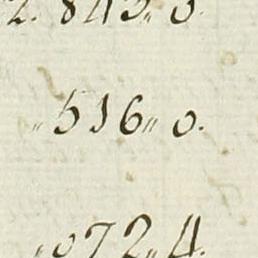 2. 843„ 0.
„ 516„ 0.
„ 972„ 4.